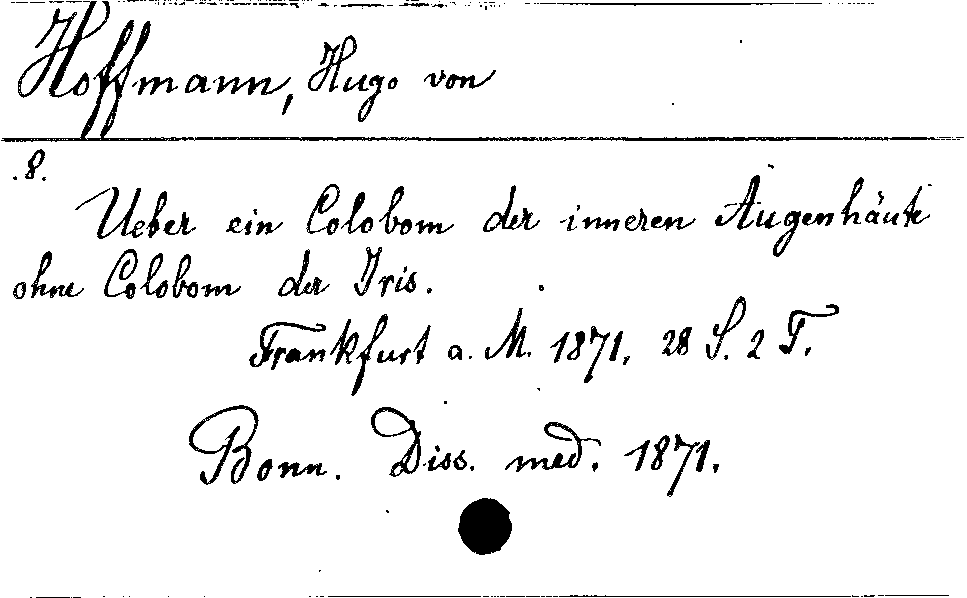 Hoffmann, Hugo von
.8.
Ueber ein Colobom der inneren Augenhäute
ohne Colobom der Iris.
Frankfurt a. M. 1871. 28 S. 2 T.
Bonn. Diss. med. 1871.